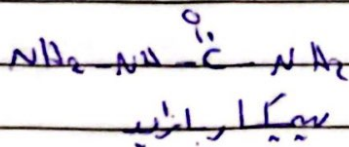 O
NH₂-NH-C-NH₂
سیمیکاربازاید